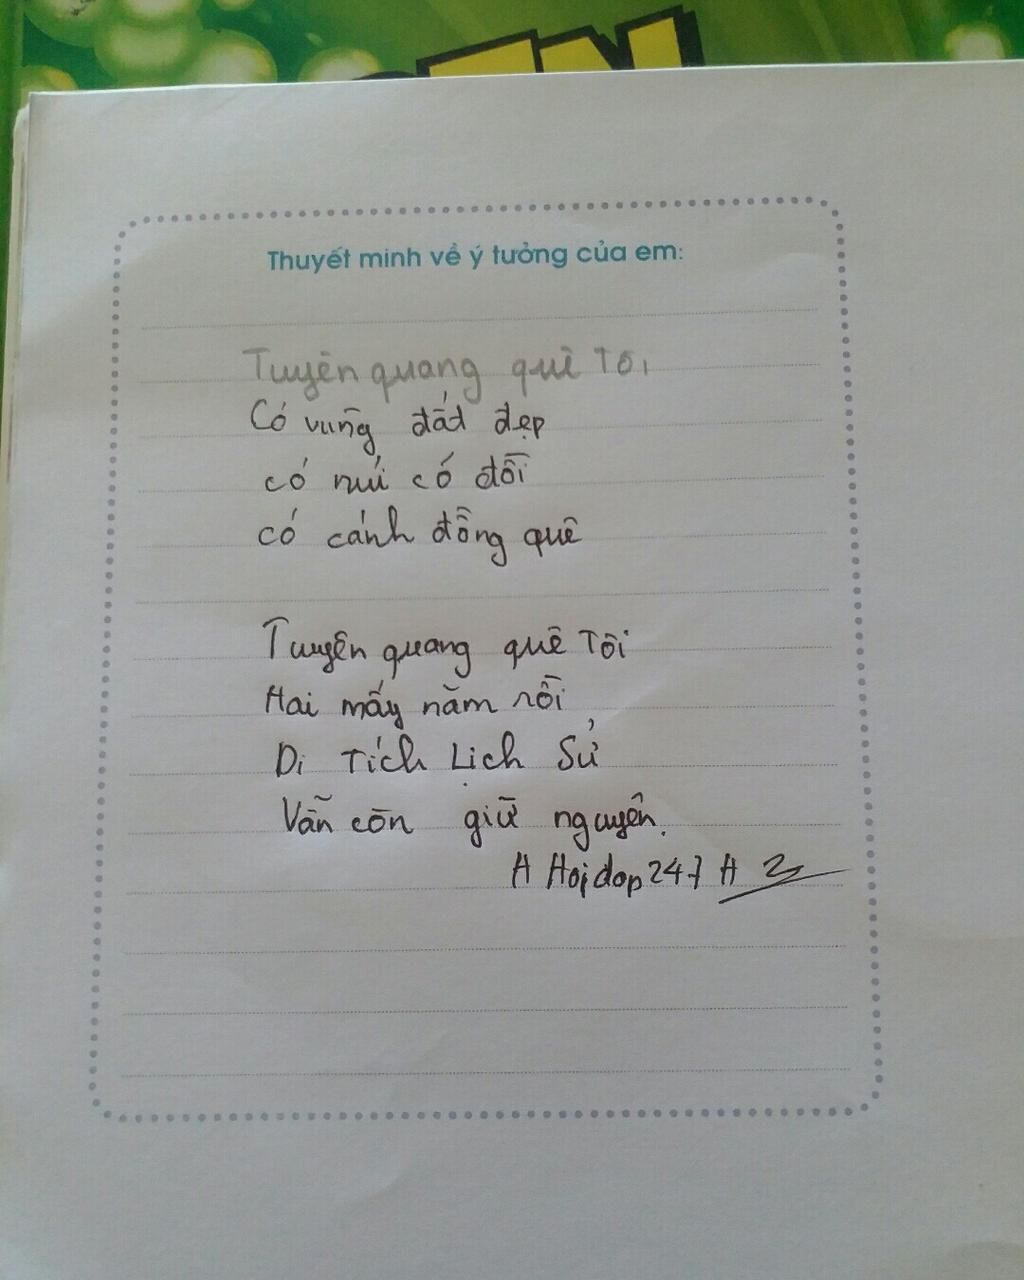 Thuyết minh về ý tưởng của em:
Tuyên quang quê Tôi
Có vung đất đẹp
có núi có đồi
có cánh đồng quê
Tuyên quang quê Tôi
Hai mấy năm rồi
Di Tích Lịch Sử
Vẫn còn giữ nguyên.
H Hoidap247 H